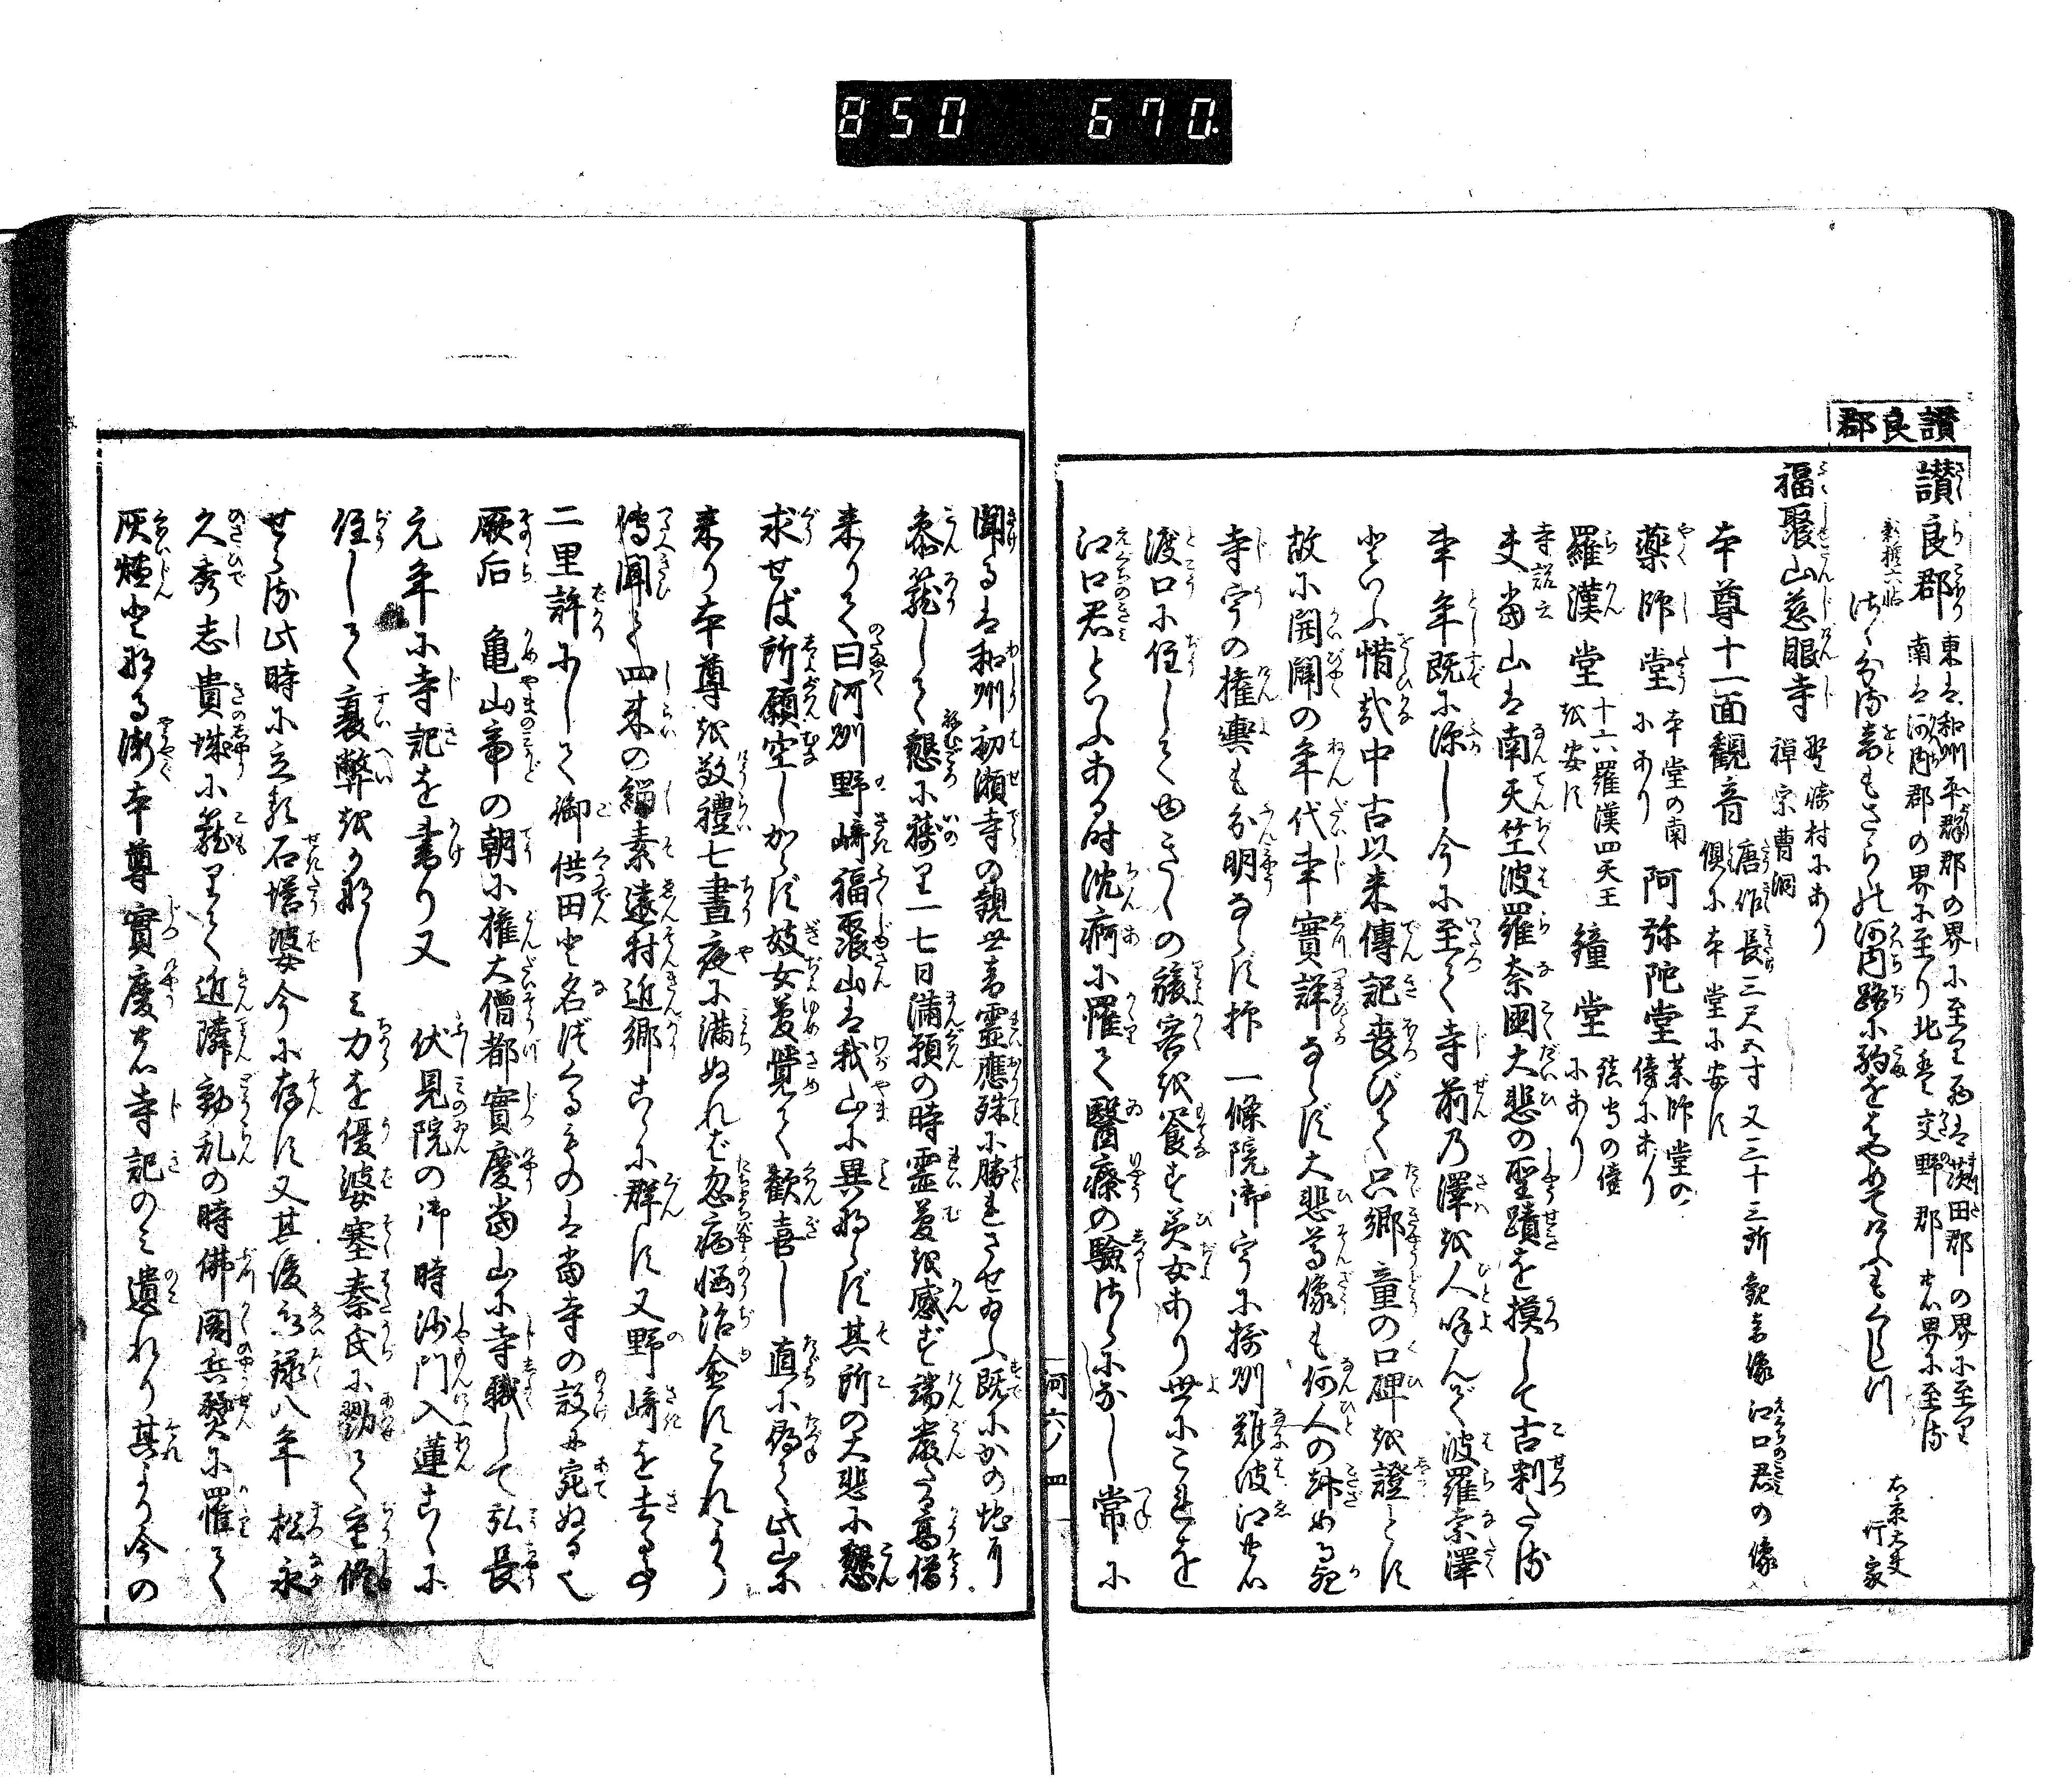 850 670.
讃良郡
讃良郡 東は和州平群郡の界に至り西は茨田郡の界に至り
南は河内郡の界に至り北は交野郡の界に至る
新撰六帖
河内路に駒をはやめてけふもくらしつ 右京大夫行家
福聚山慈眼寺 野崎村にあり
禅宗曹洞
本尊十一面観音 唐作長三尺五寸又三十三所観音像江口君の像
倶に本堂に安す
薬師堂 本堂の南にあり 阿弥陀堂 薬師堂の傍にあり
羅漢堂 十六羅漢四天王を安す 鐘堂 鎮守の傍にあり
寺説云
夫当山は南天竺波羅奈国大悲の聖蹟を摸して古刹たる
事年既に深し今に至て寺前の澤を人呼んで波羅奈澤
といふ惜哉中古以来傳記喪びて只郷童の口碑を證とす
故に開闢の年代事實詳ならず大悲尊像も何人の
寺宇の権輿も分明ならず抑一條院御宇に摂州難波江の
渡口に住してゆきゝの旅客を餐す美女あり世にこれを
江口君といふある時沈痾に罹て醫療の驗さらになし常に
河六ノ四
聞る和州初瀬寺の観世音霊應殊に勝れさせ給ふ既にかの地に
参籠して懇に祷り一七日満願の時霊夢を感ず端厳たる高僧
来りて曰河州野崎福聚山は我山に異ならず其所の大悲に懇
求せば所願空しからず妓女夢覚て歓喜し直に尋て此山に
来り本尊を敬禮七晝夜に満ぬれば忽病悩治金すこれより
傳聞て四来の緇素遠村近郷こゝに群す又野崎を去る事
二里許にして御供田と名づくるものは当寺の設に宛ぬる也
厥后 亀山帝の朝に権大僧都實慶当山に寺職して弘長
元年に寺記を書り又 伏見院の御時沙門入蓮こゝに
住して衰弊をうれしみ力を優婆塞秦氏に勠て重修
せらる此時に立る石塔婆今に存す又其後永禄八年松永
久秀志貴城に籠りて近隣動乱の時佛閣兵燹に罹て
灰燼となる漸本尊實慶の寺記のみ遺れり其より今の